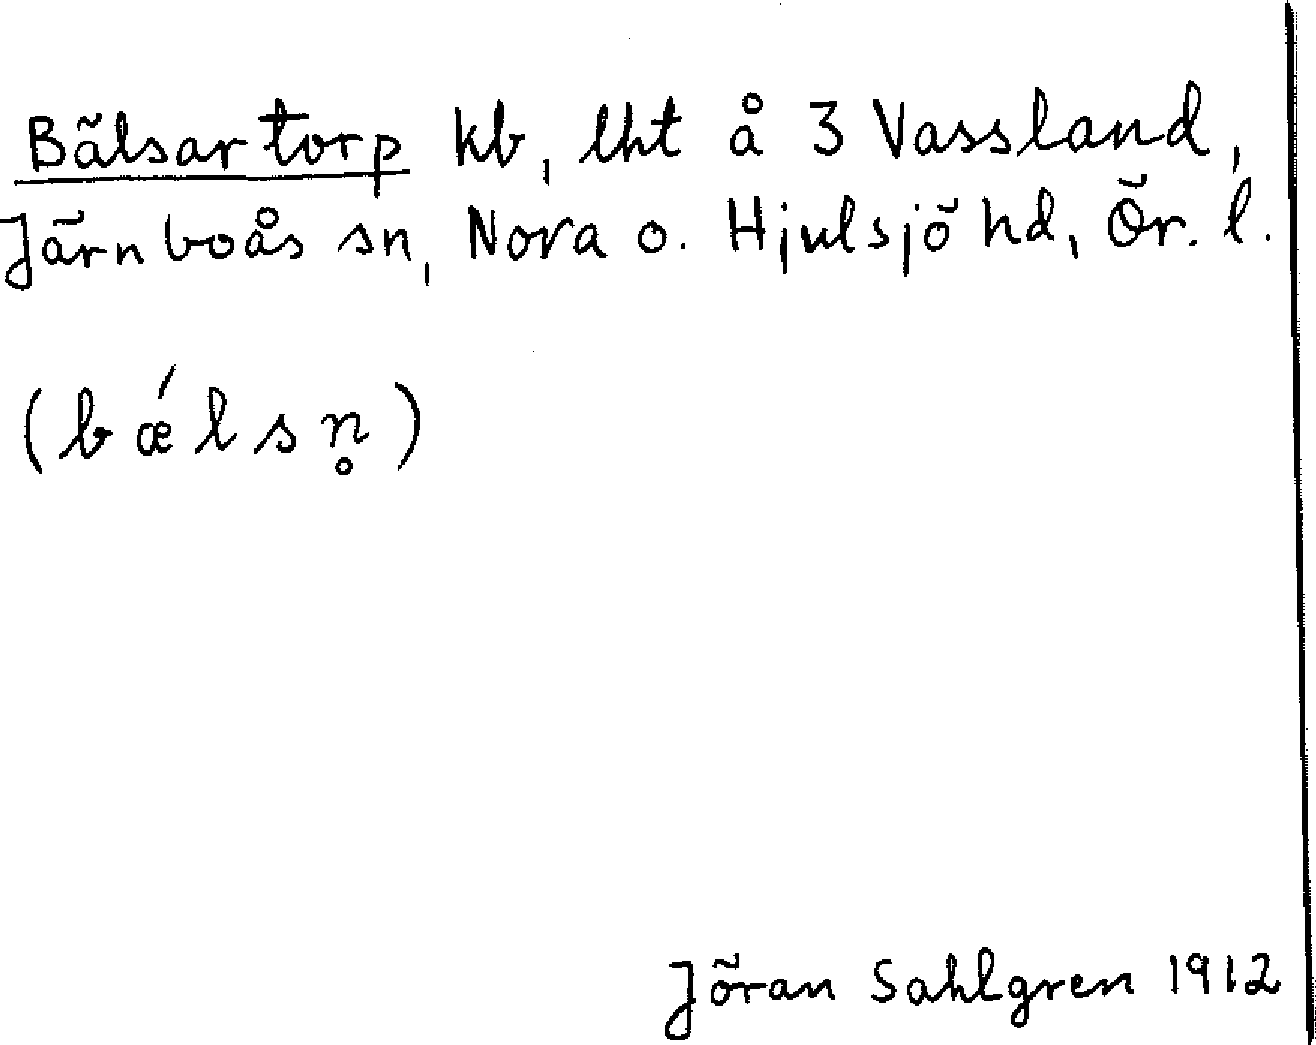 Bälsartorp kb, lht å 3 Vassland,
Järnboås sn, Nora o. Hjulsjö hd, Ör. l.
(bǽlsn̥)
Jöran Sahlgren 1912